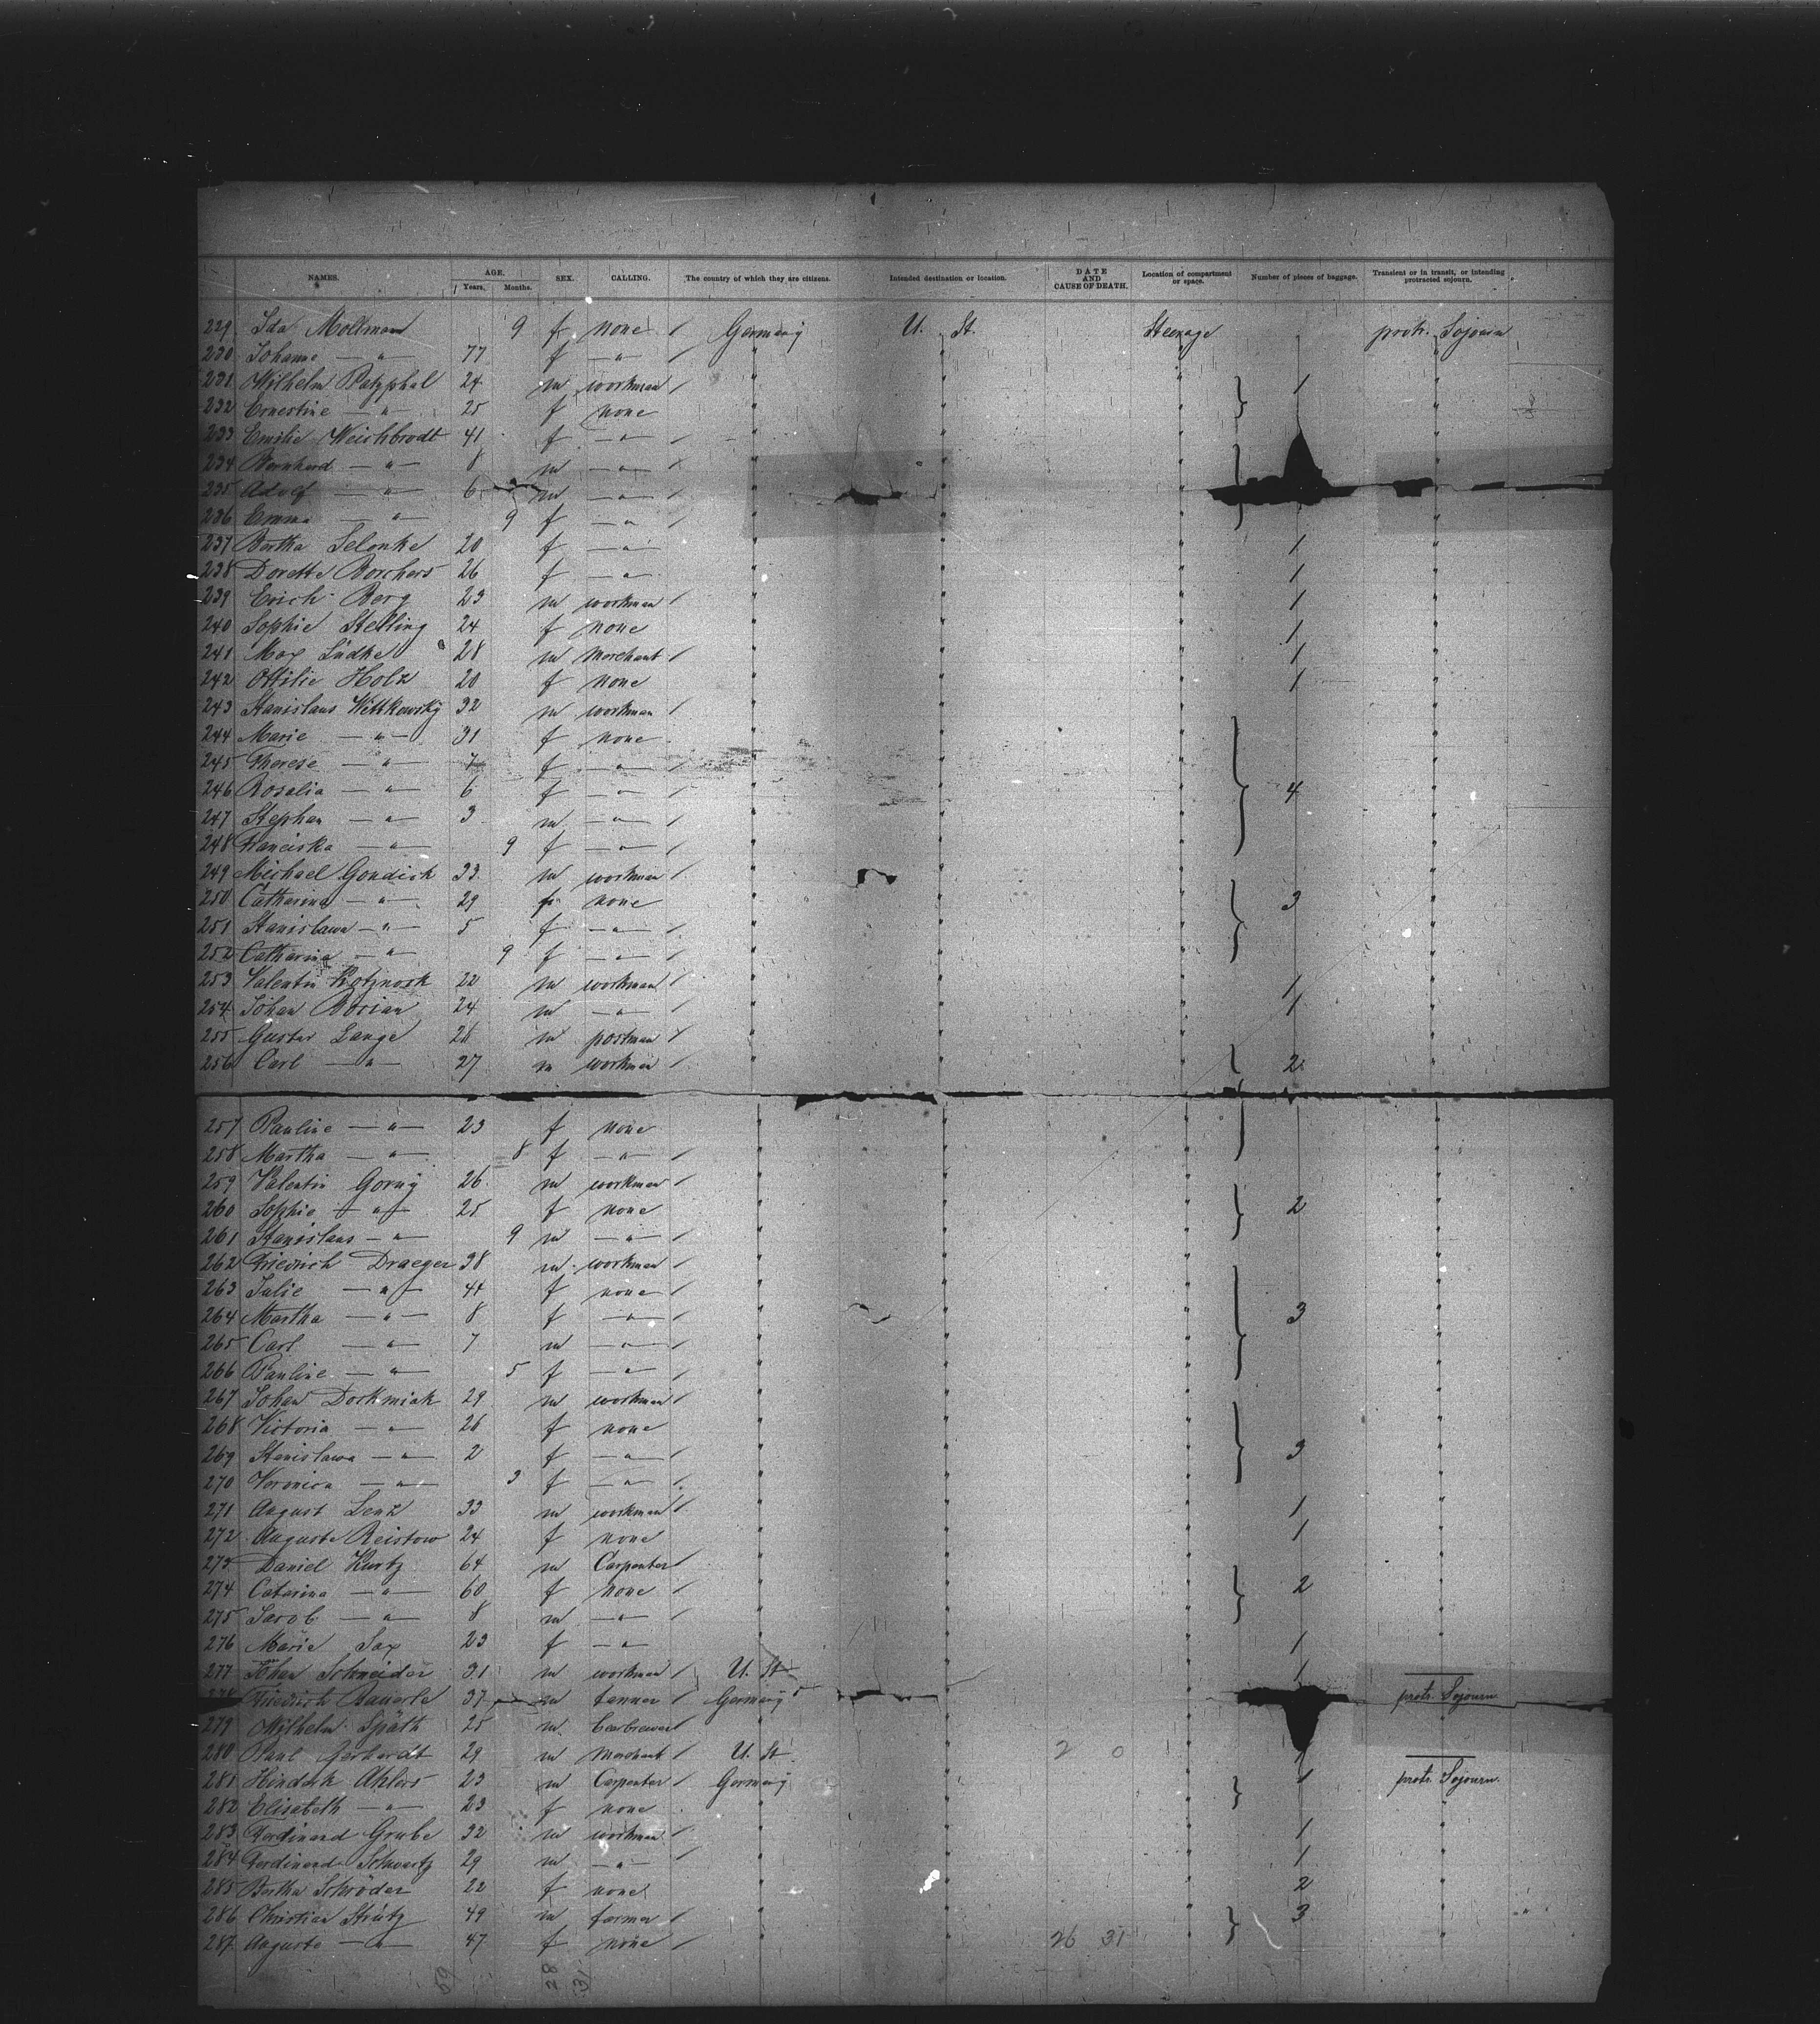 NAMES. AGE. SEX. CALLING. The country of which they are citizens. Intended destination or location. DATE AND CAUSE OF DEATH. Location of compartment or space. Number of pieces of baggage. Transient or in transit, or intending protracted sojourn.
Years. Months.
229 Ida Mollmann 9 f none / Germany U. St. Steerage protr. Sojourn
230 Johanne — " — 77 f — " — /
231 Wilhelm 24 m workman / 1
232 Ernestine — " — 25 f none
233 Emilie Weichbrodt 41 f — " — /
234 Bernhard — " — 8 m — " — /
235 Adolf — " — 6 m — " — /
236 Emma — " — 9 f — " — /
237 Bertha Selonke 20 f — " — 1
238 Dorette Borchers 26 f — " — 1
239 Erich Berg 23 m workman / 1
240 Sophie Stelling 24 f none 1
241 Max Lüdke 28 m Merchant / 1
242 Ottilie Holz 20 f none 1
243 Stanislaus Wittkowsky 32 m workman /
244 Marie — " — 31 f none
245 Therese — " — 7 f — " — /
246 Rosalia — " — 6 f — " — / 4
247 Stephan — " — 3 m — " — /
248 Franciska — " — 9 f — " — /
249 Michael Gondick 33 m workman /
250 Catharina — " — 29 f none 3
251 Stanislawa — " — 5 f — " — /
252 Catharina — " — 9 f — " — /
253 Valentin 22 m workman / 1
254 Johan Borian 24 m — " — / 1
255 Gustav Lange 28 m postman /
256 Carl — " — 27 m workman / 2
257 Pauline — " — 23 f none
258 Martha — " — 8 f — " — /
259 Valentin Gorny 26 m workman /
260 Sophie — " — 25 f none 2
261 Stanislaus — " — 9 m — " — /
262 Friedrich Draeger 38 m workman /
263 Julie — " — 44 f none /
264 Martha — " — 8 f — " — / 3
265 Carl — " — 7 m — " — /
266 Pauline — " — 5 f — " — /
267 Johan Dorkmiak 29 m workman /
268 Victoria — " — 26 f none
269 Stanislawa — " — 2 f — " — / 3
270 Veronica — " — 3 f — " — /
271 August Lenz 33 m workman / 1
272 Auguste Reistow 24 f none 1
273 Daniel Kurtz 64 m Carpenter /
274 Catarina — " — 60 f none / 2
275 Jacob — " — 8 m — " — /
276 Marie Sax 23 f — " — 1
277 Johan Schneider 31 m workman / U. St 1
Friedrich Bauerle 37 m tanner / Germany protr. Sojourn
279 Wilhelm Späth 25 m beerbrewer /
280 Paul Gerhardt 29 m Merchant / U. St 2 0 1
281 Hindrik Ahlers 23 m Carpenter / Germany 1 protr. Sojourn.
282 Elisabeth — " — 23 f none
283 Ferdinand Grube 32 m workman / 1
284 Ferdinand Schwartz 29 m — " — / 1
285 Bertha Schröder 22 f none 2
286 Christian Strutz 49 m farmer / 3
287 Auguste — " — 47 f none / 26 31
59 28 31